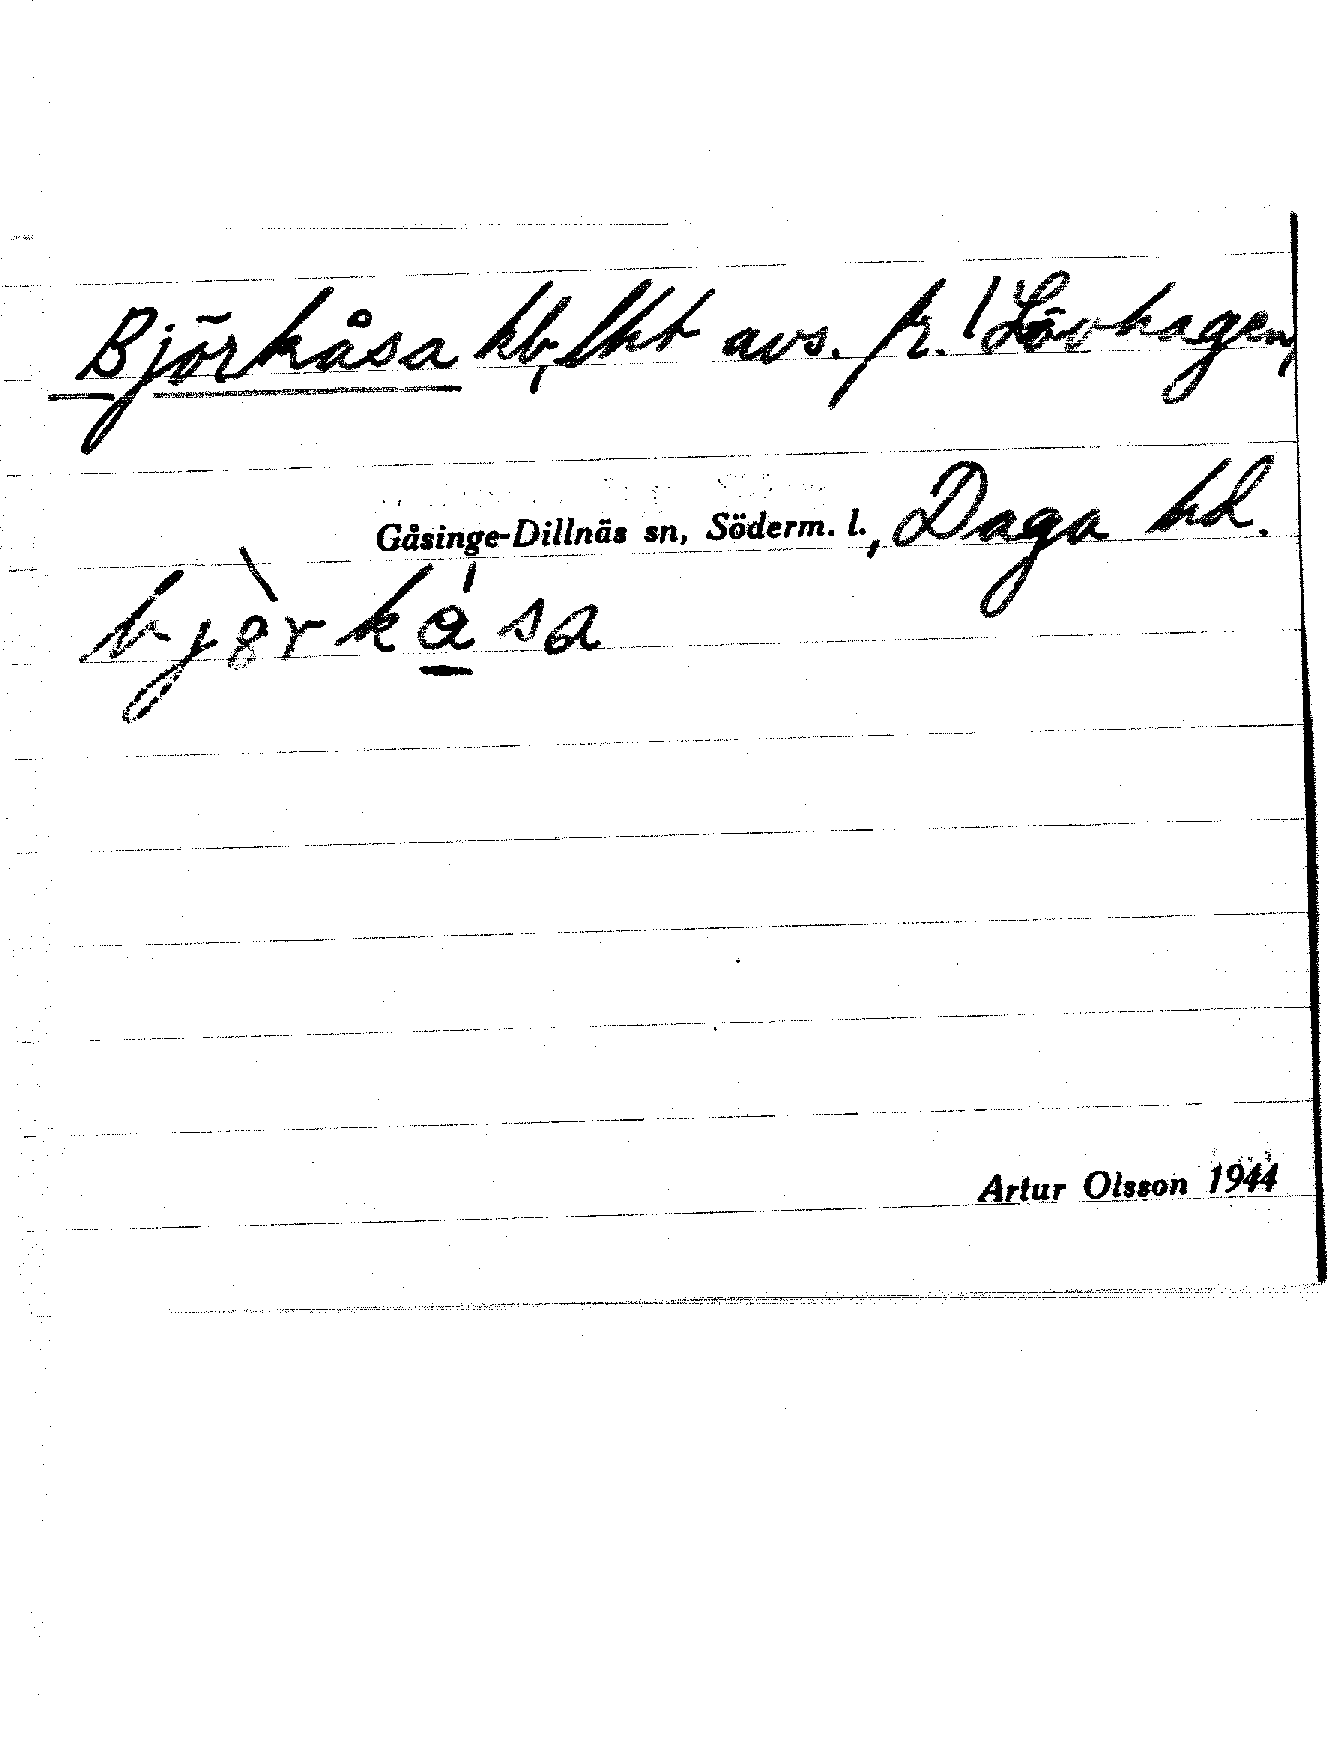 Björkåsa hb, lht avs. fr. 1 Lövhagen,
Gåsinge-Dillnäs sn, Söderm. l., Daga hd.
bjòrkåsa
Artur Olsson 1944